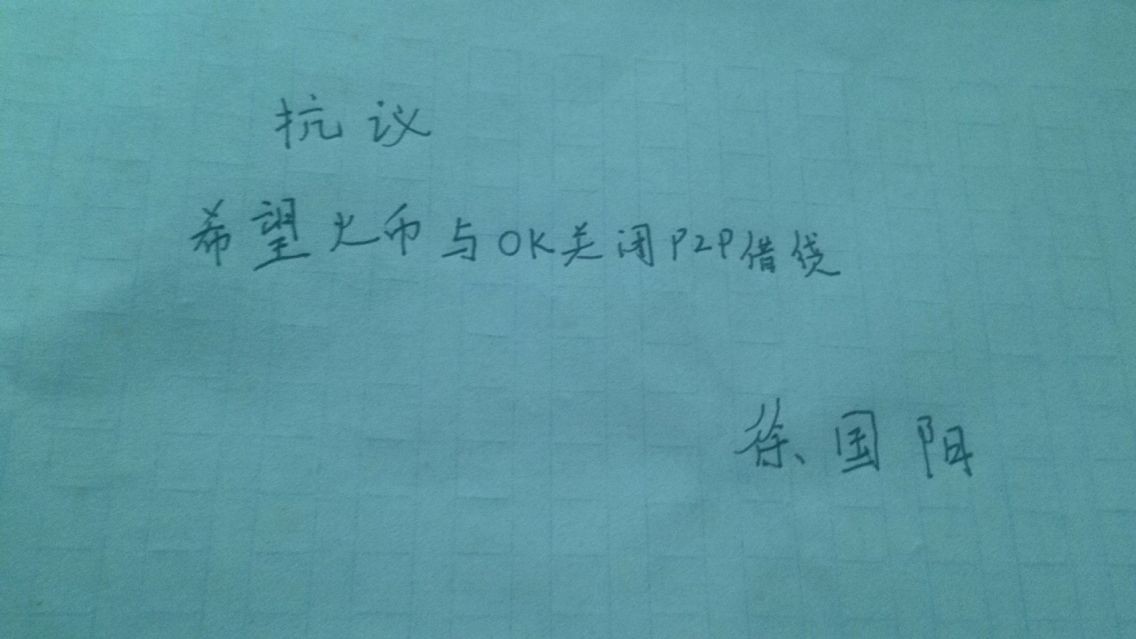 抗议
希望火币与OK关闭P2P借贷
徐国阳